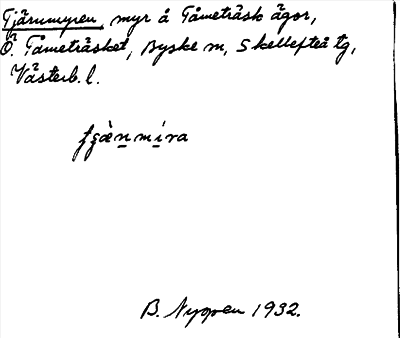 Tjärnmyren, myr å Tåmeträsk ägor,
Ö. Tåmeträsket, Byske sn, Skellefteå tg,
Västerb. l.
B. Nygren 1932.